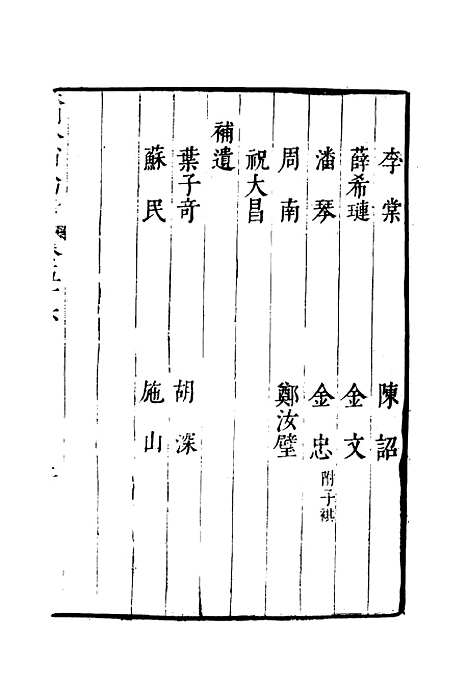 李棠 陳詔
薛希璉 金文
潘琴 金忠 附子祺
周南 鄭汝璧
祝大昌
補遺
葉子奇 胡深
蘇民 施山